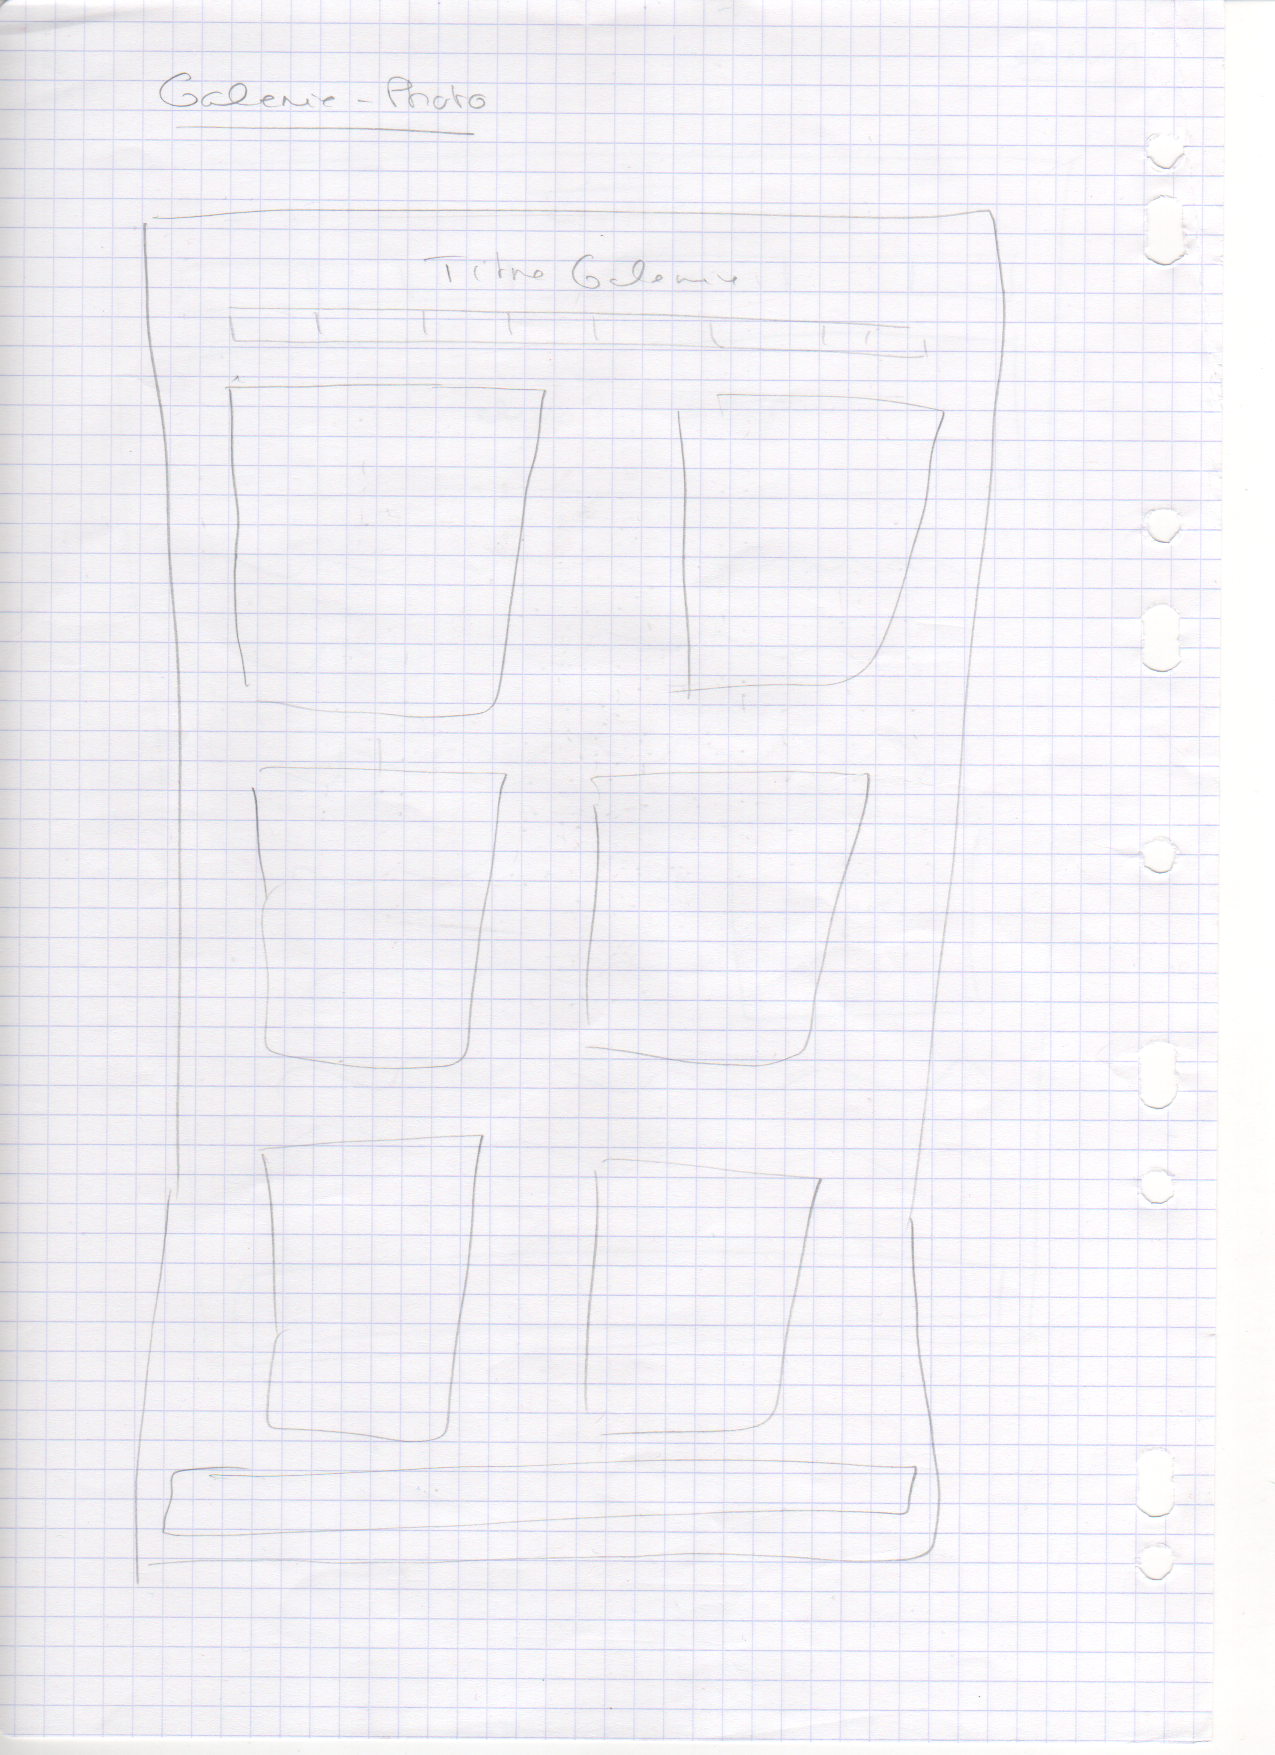 Galerie - Photo
Titre Galerie